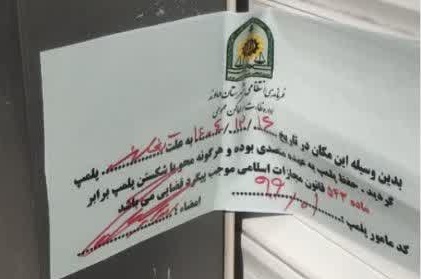 فرماندهی انتظامی شهرستان دماوند
اداره نظارت بر اماکن عمومی
بدین وسیله این مکان در تاریخ ۱۴۰۴/۱۲/۱۶ به علت ... پلمپ
گردید. حفظ پلمپ به عهده متصدی بوده و هرگونه محو یا شکستن پلمپ برابر
ماده ۵۴۳ قانون مجازات اسلامی موجب پیگرد قضایی می باشد
کد مامور پلمپ :
امضاء :